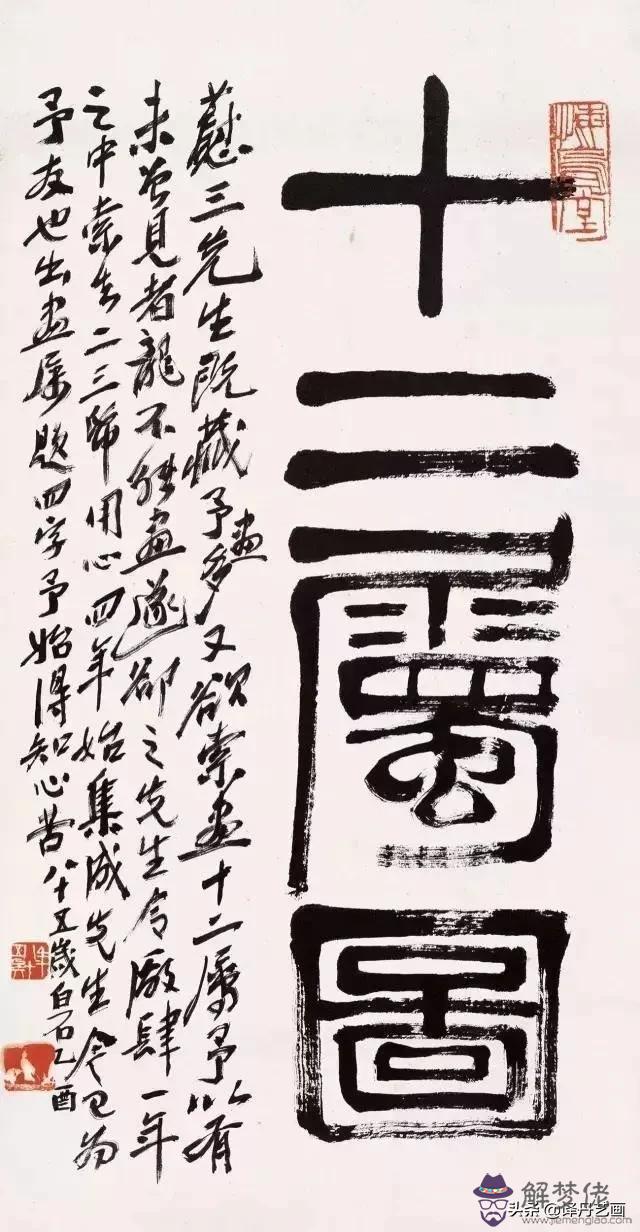 十二屬圖
蔬三先生既藏予畫多又欲索畫十二屬予以有
未曾見者龍不能畫遂卻之先生令廠肆一年
之中索去二三幅用心四年始集成先生今已為
予友也出畫屬題四字予始得知心苦八十五歲白石乙酉
解梦佬
头条@译丹艺画
www.jiemenglao.com